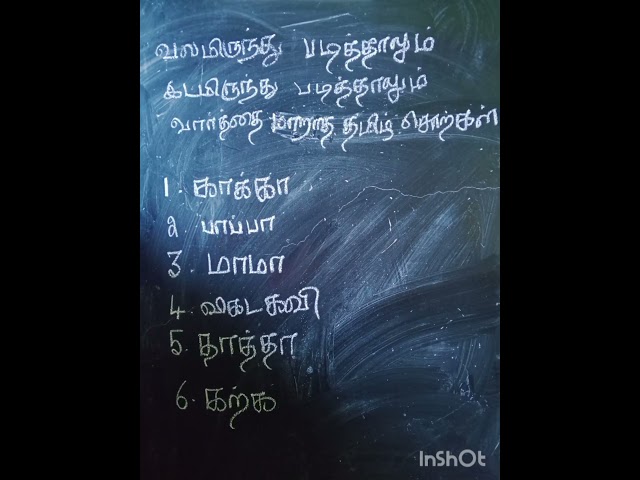 வலமிருந்து படித்தாலும்
இடமிருந்து படித்தாலும்
வார்த்தை மாறாத தமிழ் சொற்கள்
1. காக்கா
2. பாப்பா
3. மாமா
4. விகடகவி
5. தாத்தா
6. கற்க
InShOt